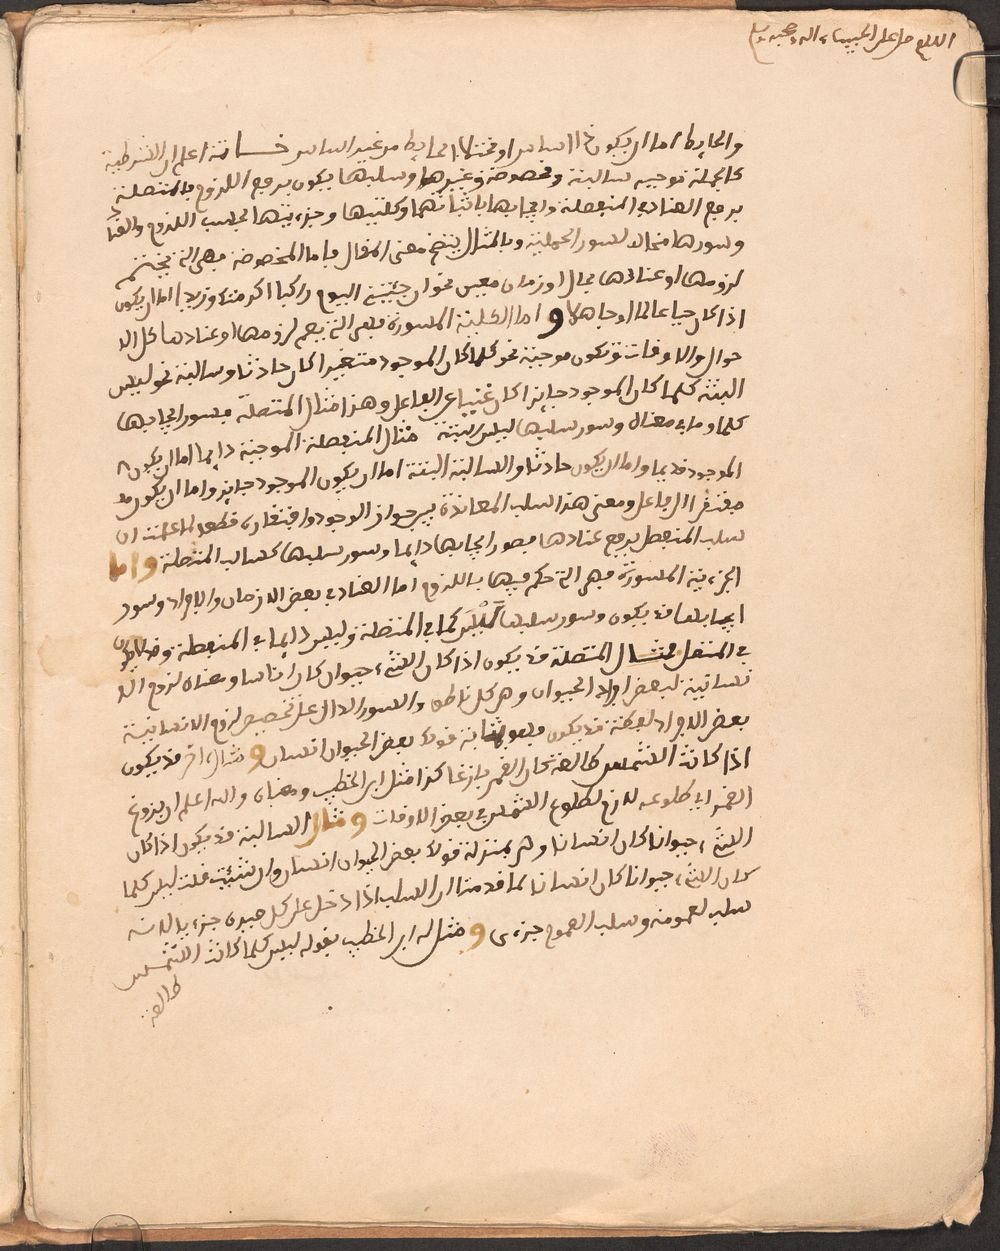 اللهم صل على الحبيب واله وصحبه وسلم
والحايط اما ان يكون ذا اساس او مختلا الحايط من غير اساس خـاتمة اعلم ان الشرطية
كالحملية موجبة سالبة ومخصوصة وغيرها وسلبها يكون برفع اللزوم بالمتصلة
برفع العناد في المنفصلة وايجابها باثباتهما وكليتها وجزءيتها بحسب اللزوم والعناد
وسورها مخالف لسور الحملية وبالمثال يتضح معنى المقال فاما المخصوصة فهي التي يختص
لزومها او عنادها بحال او زمان معين نحو ان جئتني اليوم راكبا اكرمتك وزيد اما ان يكون
اذا كان حيا عالما او جاهلا واما الكلية المسورة فهي التي يعم لزومها او عنادها كل الا
حوال والاوقات وتكون موجبة نحو كلما كان الموجود متغيرا كان حادثا وسالبة نحو ليس
البتة كلما كان الموجود جايزا كان غنيا عن الفاعل وهذا مثال المتصلة فسور ايجابها
كلما وما في معناه وسور سلبها ليس البتة مثال المنفصلة الموجبة دايما اما ان يكون
الموجود قديما واما ان يكون حادثا والسالبة البتة اما ان يكون الموجود جايز واما ان يكون
مفتقر الى فاعل ومعنى هذا سلب المعاندة بين جواز الوجود وافتقاره قطعا لما علمت ان
سلب المنفصل برفع عنادها فسور ايجابها دايما وسور سلبها كسالب المتصلة واما
الجزءية المسورة فهي التي حكم فيها باللزوم اما العناد في بعض الازمان والافراد وسور
ايجابها قد يكون وسور سلبها ليس كما في المتصلة وليس دايما في المنفصلة وقد لا يكون
في المتصل مثـال المتصلة قد يكون اذا كان الشيء حيوان كان انسانا ومعناه لزوم الا
نسانية لبعض افراد الحيوان وهو كل ناطق والسور الدال على تخصيص لزوم الانسانية
بعض الافراد لفظة قد يكون فهو بمثابة قولك بعض الحيوان انسان ومثال اخر قد يكون
اذا كانت الشمس طالعة كان القمر بازغا كذا مثل ابن الخطيب ومعناه والله اعلم ان بزوغ
القمر اي طلوعه لازم لطلوع الشمس في بعض الاوقات ومثال السالبة قد يكون اذا كان
الشيء حيوانا كان انسانا وهي بمنزلة قولك بعض الحيوان انسان وان شئت قلت ليس كلما
كان الشيء حيوانا كان انسانا لما قدمنا ان السلب اذا دخل على كل صيره جزءيا لانه
سلب لعمومه وسلب العموم جزءى ومثل له ابن الخطيب بقوله ليس كلما كانت الشمس
طالعة